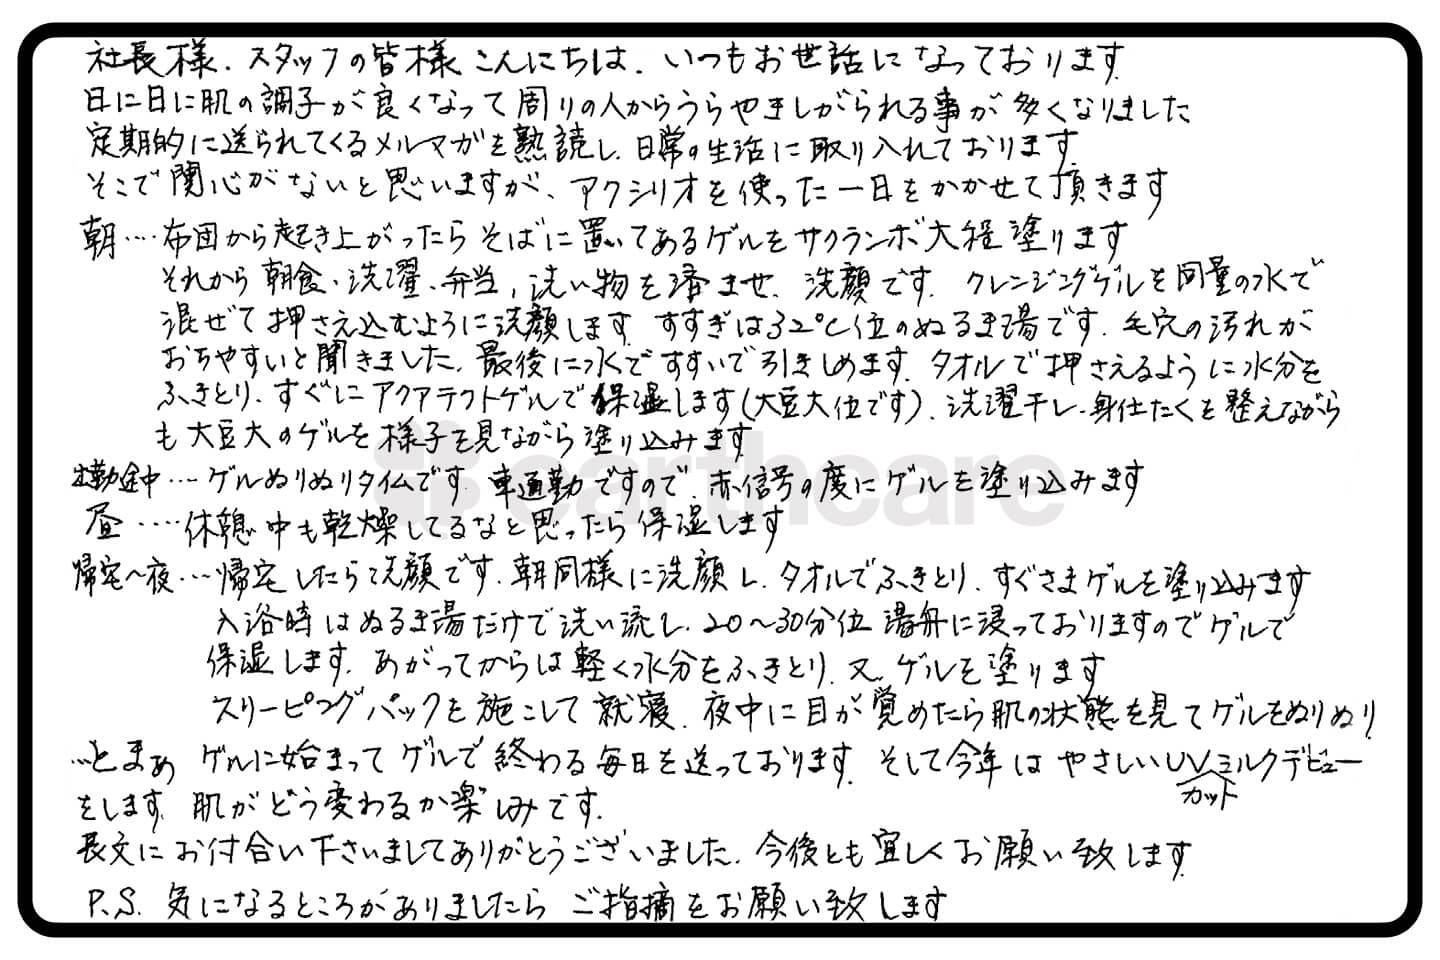 社長様、スタッフの皆様こんにちは、いつもお世話になっております
日に日に肌の調子が良くなって周りの人からうらやましがられる事が多くなりました
定期的に送られてくるメルマガを熟読し、日常の生活に取り入れております
そこで関心がないと思いますが、アクシリオを使った一日をかかせて頂きます
朝‥‥布団から起き上がったらそばに置いてあるゲルをサクランボ大程塗ります
それから朝食、洗濯、弁当、洗い物を済ませ、洗顔です。クレンジングゲルを同量の水で
混ぜて押さえ込むように洗顔します。すすぎは32℃位のぬるま湯です。毛穴の汚れが
おちやすいと聞きました。最後に水ですすいで引きしめます。タオルで押さえるように水分を
ふきとり、すぐにアクアテクトゲルで保湿します(大豆大位です)。洗濯干し、身仕たくを整えながら
も大豆大のゲルを様子を見ながら塗り込みます
earthcare
出勤途中…ゲルぬりぬりタイムです。車通勤ですので、赤信号の度にゲルを塗り込みます
昼‥‥休憩中も乾燥してるなと思ったら保湿します
帰宅〜夜…帰宅したら洗顔です。朝同様に洗顔し、タオルでふきとり、すぐさまゲルを塗り込みます
入浴時はぬるま湯だけで洗い流し、20〜30分位湯舟に浸っておりますのでゲルで
保湿します。あがってからは軽く水分をふきとり、又、ゲルを塗ります
スリーピングパックを施こして就寝、夜中に目が覚めたら肌の状態を見てゲルをぬりぬり
…とまぁ ゲルに始まってゲルで終わる毎日を送っております。そして今年はやさしいUVカットミルクデビュー
をします。肌がどう変わるか楽しみです。
長文にお付合い下さいましてありがとうございました。今後とも宜しくお願い致します
P.S. 気になるところがありましたらご指摘をお願い致します